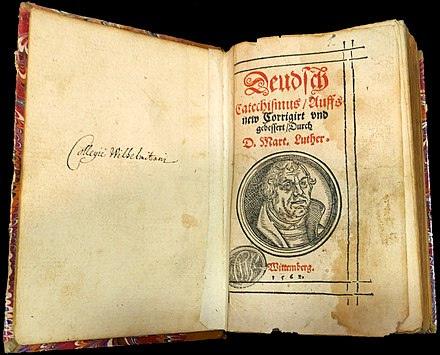 Collegii Wilhelmitani
Deudsch
Catechismus/Auffs
new Corrigirt vnd
gebessert/Durch
D. Mart. Luther.
Wittemberg.
1562.